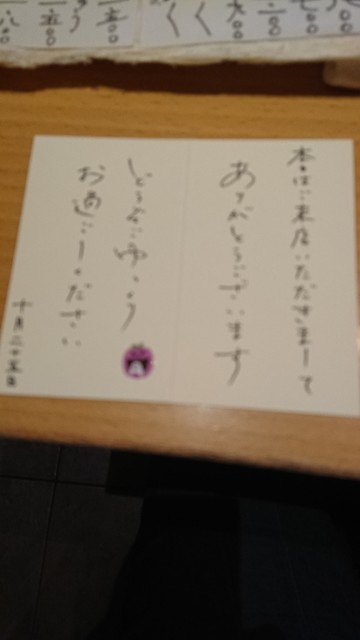 本日はご来店いただきまして
ありがとうございます
どうぞごゆっくり
お過ごしください
十月二十五日